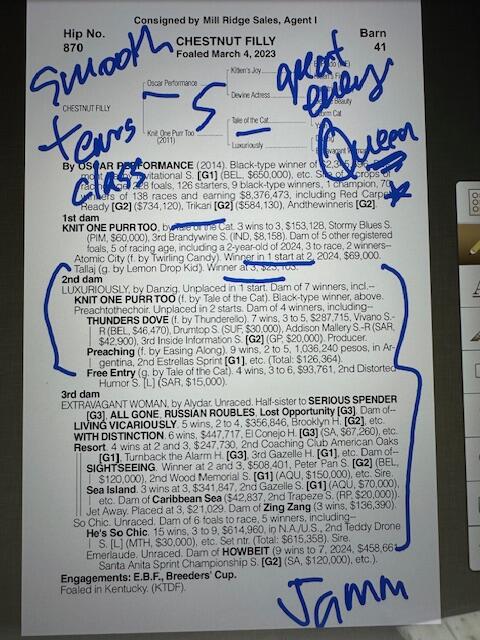 Consigned by Mill Ridge Sales, Agent I
Hip No.
870
Barn
41
CHESTNUT FILLY
Foaled March 4, 2023
Smooth
great
energy
5
tears
class
Queen
Oscar Performance
Kitten's Joy
Devine Actress
CHESTNUT FILLY
Beauty
Tale of the Cat
Cat
Knit One Purr Too
(2011)
Luxuriously
By OSCAR PERFORMANCE (2014). Black-type winner of
Invitational S. [G1] (BEL, $650,000), etc.
foals, 126 starters, 9 black-type winners, 1 champion,
of 138 races and earning $8,376,473, including Red Carpet
Ready [G2] ($734,120), Trikari [G2] ($584,130), Andthewinneris [G2].
1st dam
KNIT ONE PURR TOO, by Tale of the Cat. 3 wins to 3, $153,128, Stormy Blues S.
(PIM, $60,000), 3rd Brandywine S. (IND, $8,158). Dam of 5 other registered
foals, 5 of racing age, including a 2-year-old of 2024, 3 to race, 2 winners--
Atomic City (f. by Twirling Candy). Winner in 1 start at 2, 2024, $69,000.
Tallaj (g. by Lemon Drop Kid). Winner at 3,
2nd dam
LUXURIOUSLY, by Danzig. Unplaced in 1 start. Dam of 7 winners, incl.--
KNIT ONE PURR TOO (f. by Tale of the Cat). Black-type winner, above.
Preachtothechoir. Unplaced in 2 starts. Dam of 4 winners, including--
THUNDERS DOVE (f. by Thunderello). 7 wins, 3 to 5, $287,715, Vivano S.-
R (BEL, $46,470), Drumtop S. (SUF, $30,000), Addison Mallery S.-R (SAR,
$42,900), 3rd Inside Information S. [G2] (GP, $20,000). Producer.
Preaching (f. by Easing Along). 9 wins, 2 to 5, 1,036,240 pesos, in Ar-
gentina, 2nd Estrellas Sprint [G1], etc. (Total: $126,364).
Free Entry (g. by Tale of the Cat). 4 wins, 3 to 6, $93,761, 2nd Distorted
Humor S. [L] (SAR, $15,000).
3rd dam
EXTRAVAGANT WOMAN, by Alydar. Unraced. Half-sister to SERIOUS SPENDER
[G3], ALL GONE, RUSSIAN ROUBLES, Lost Opportunity [G3]. Dam of--
LIVING VICARIOUSLY. 5 wins, 2 to 4, $356,846, Brooklyn H. [G2], etc.
WITH DISTINCTION. 6 wins, $447,717, El Conejo H. [G3] (SA, $67,260), etc.
Resort. 4 wins at 2 and 3, $247,730, 2nd Coaching Club American Oaks
[G1], Turnback the Alarm H. [G3], 3rd Gazelle H. [G1], etc. Dam of--
SIGHTSEEING. Winner at 2 and 3, $508,401, Peter Pan S. [G2] (BEL,
$120,000), 2nd Wood Memorial S. [G1] (AQU, $150,000), etc. Sire.
Sea Island. 3 wins at 3, $341,847, 2nd Gazelle S. [G1] (AQU, $70,000),
etc. Dam of Caribbean Sea ($42,837, 2nd Trapeze S. (RP, $20,000)).
Jet Away. Placed at 3, $21,029. Dam of Zing Zang (3 wins, $136,390).
So Chic. Unraced. Dam of 6 foals to race, 5 winners, including--
He's So Chic. 15 wins, 3 to 9, $614,960, in N.A./U.S., 2nd Teddy Drone
S. [L] (MTH, $30,000), etc. Set ntr. (Total: $615,358). Sire.
Emerlaude. Unraced. Dam of HOWBEIT (9 wins to 7, 2024, $458,661,
Santa Anita Sprint Championship S. [G2] (SA, $120,000), etc.).
Engagements: E.B.F., Breeders' Cup.
Foaled in Kentucky. (KTDF).
Jamm